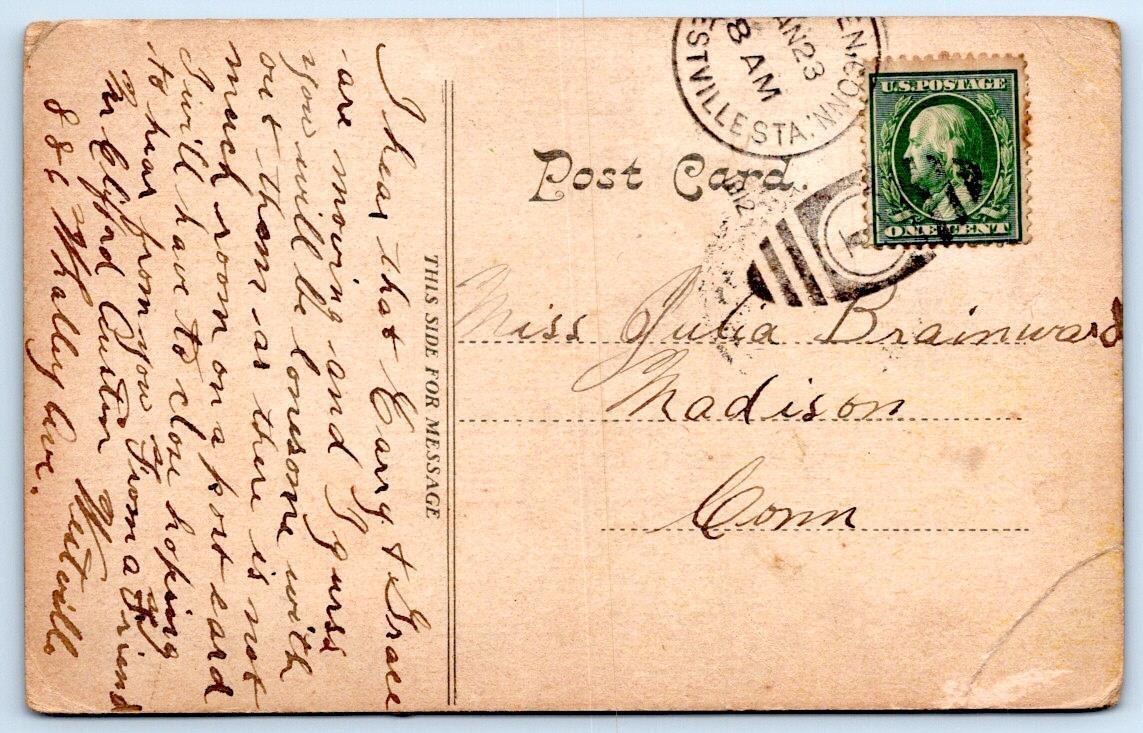 Post Card.
THIS SIDE FOR MESSAGE
U.S. POSTAGE
ONE CENT
EN, CONN.
JAN 23
8 AM
ESTVILLE STA.
1912
1
Miss Julia Brainward
Madison
Conn
I hear that Carry & Grace
are moving and I guess
you will be lonesome with
out them as there is not
much room on a post card
I will have to close hoping
to hear from you From a Friend
Mr Clyfford Austin Westville
886 Whalley Ave.